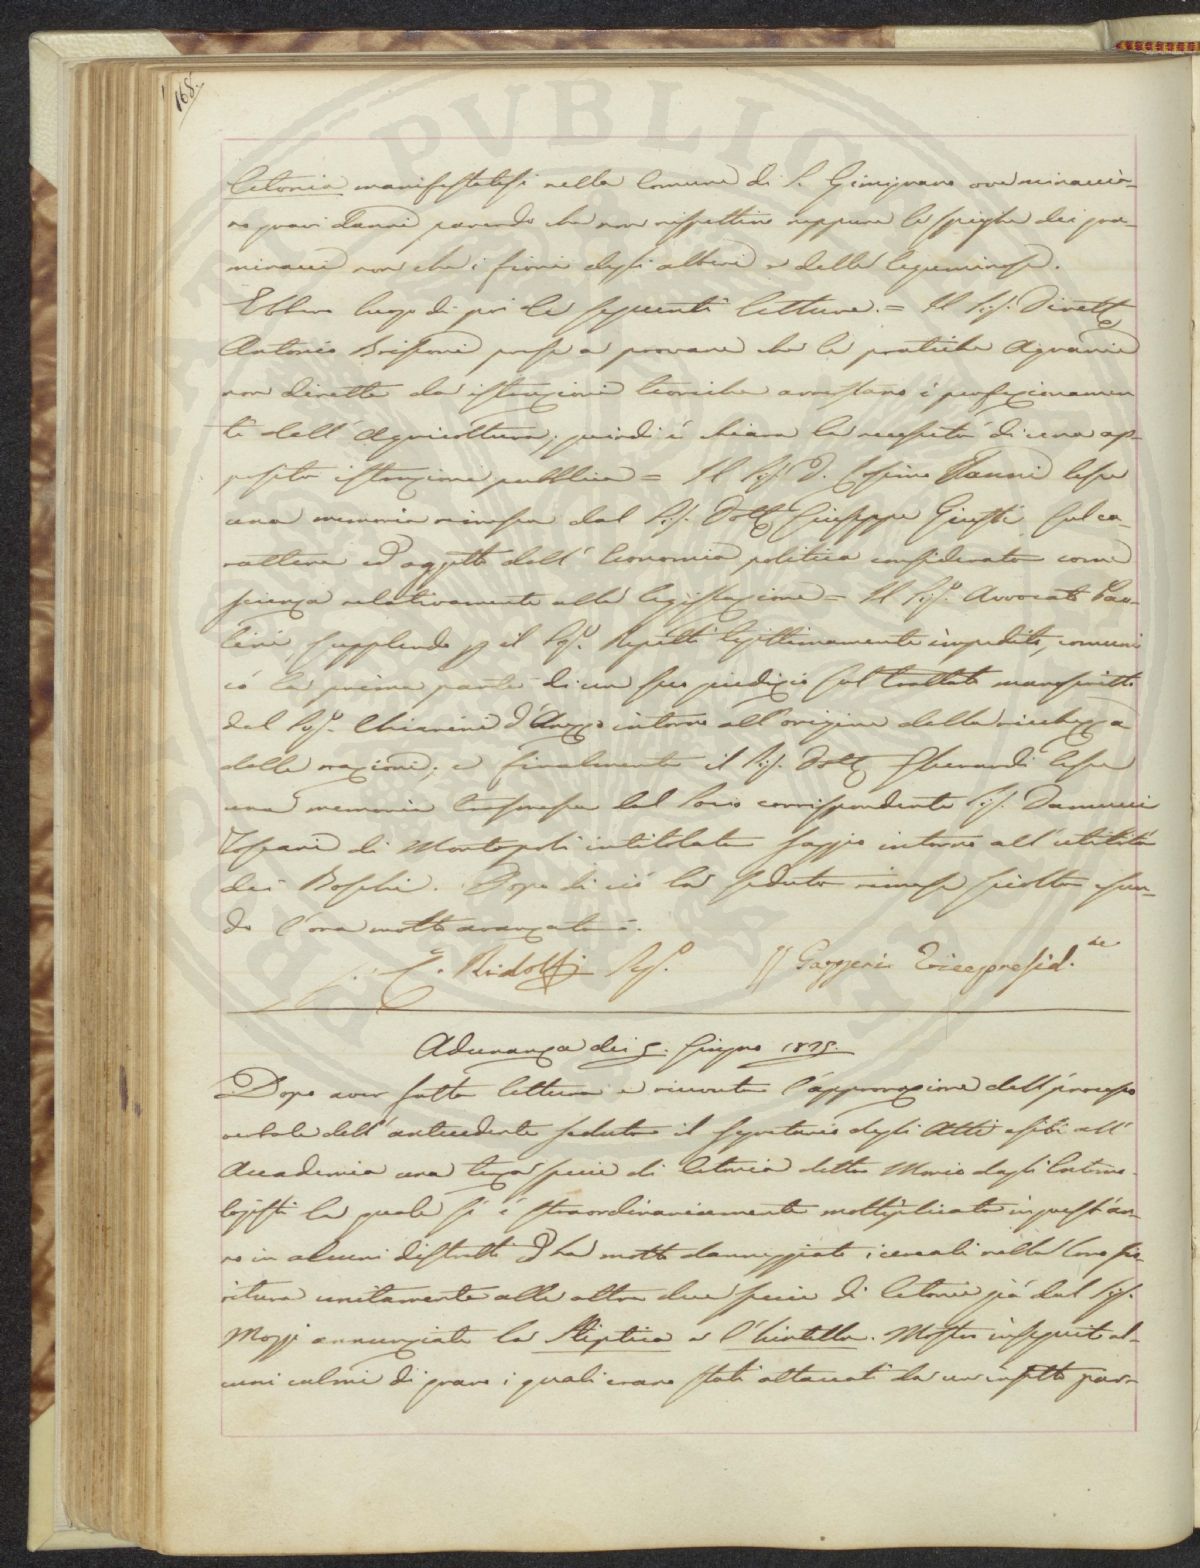 168.
Cetonia manifestatesi nella Comune di S. Gimignano ove minaccia-
no gravi danni parendo che non rispettino neppure le spighe dei gra-
minacei non che i fiori degli alberi e delle leguminose.
Ebbero luogo di poi le seguenti letture. = Il Sig. Dirett.
Antonio prese a provare che le pratiche Agrarie
non dirette da istruzioni teoriche arrestano i perfezionamen
ti dell'Agricoltura, quindi è chiara la necessità di una ap-
posita istruzione pubblica = Il Sig. D. Cosimo Vanni lesse
una memoria rimessa dal Sig. Dott. Giuseppe Giusti sul ca-
rattere ed oggetto dell'Economia politica considerata come
scienza relativamente alla legislazione = Il Sig. Avvocato Pao-
lini supplendo p il Sig. Repetti legittimamente impedito, comuni
cò la prima parte di un suo giudizio sul trattato manoscritto
del Sig. Chiarini d'Arezzo intorno all'origine della ricchezza
delle nazioni, e finalmente il Sig. Dott. Gherardi lesse
una memoria trasmessa dal Socio corrispondente Sig. Damucci
di Montopoli intitolata Saggio intorno all'utilità
dei Boschi. Dopo di ciò la seduta rimase sciolta essen-
do l'ora molto avanzata.
C. Ridolfi Sego. Gazzeri Vicepresid.te
Adunanza dei 5. Giugno 1825
Dopo aver fatta lettura e ricevuta l'approvazione dell processo
verbale dell'antecedente seduta il Segretario degli Atti esibì all'
Accademia una terza specie di Cetonia detta Morio dagli Entomo-
logisti la quale si è straordinariamente moltiplicata in quest'an-
no in alcuni distretti ed ha molto danneggiato i cereali nella loro fio
ritura unitamente alle altre due specie di Cetonie già dal Sig.
Mozzi annunziate la Stiptica e l'hirtella. Mostrò in seguito al-
cuni culmi di grano i quali erano stati attaccati da un insetto par-